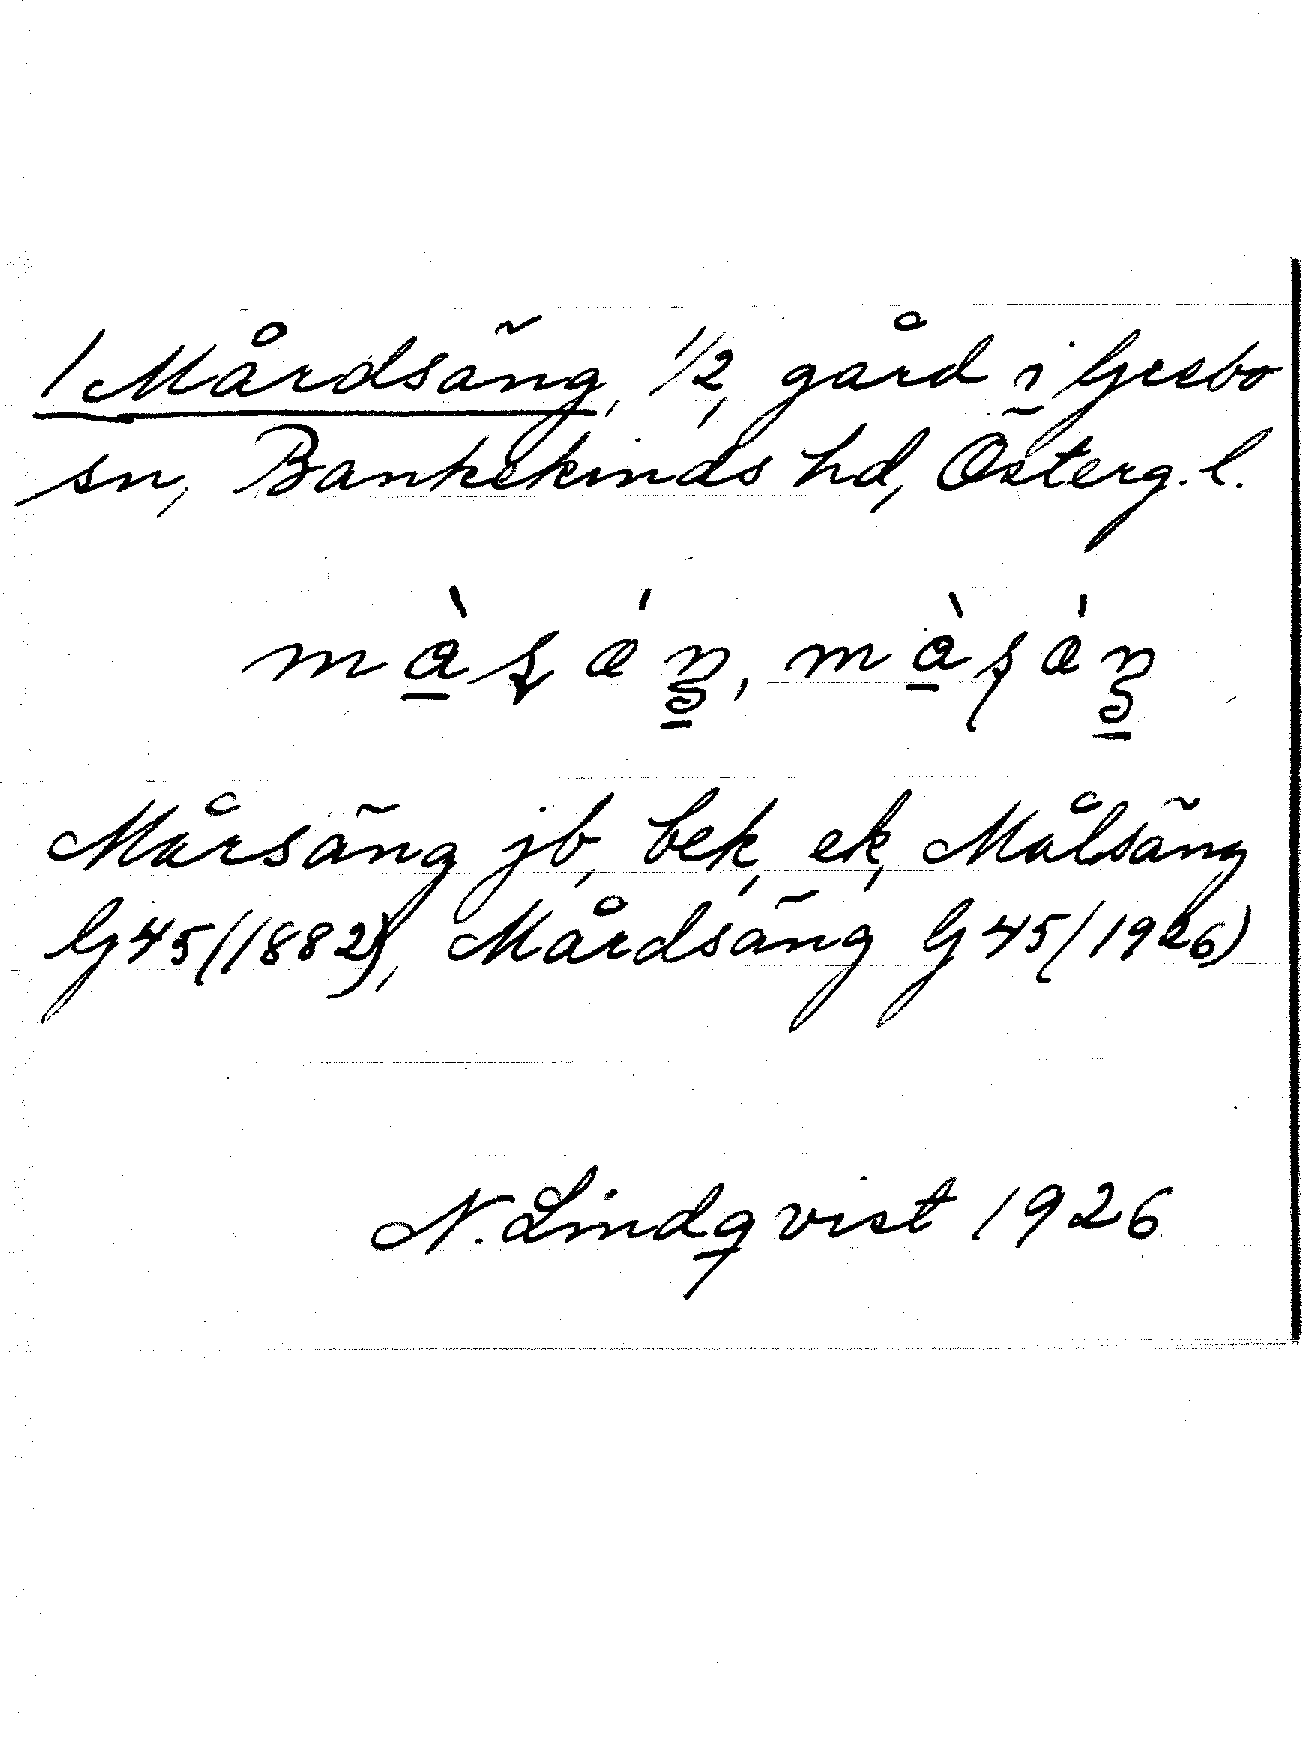 1 Mårdsäng, 1/2, gård i Grebo
sn, Bankekinds hd, Österg. l.
Mårsäng jb, bek, ek, Målsäng
G45 (1882), Mårdsäng G45 (1926)
N. Lindqvist 1926